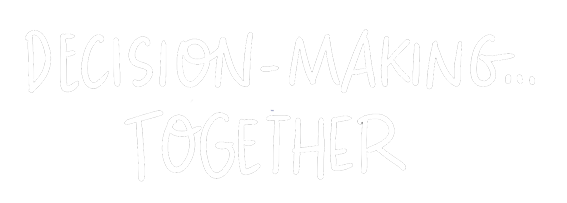 DECISION-MAKING...
TOGETHER